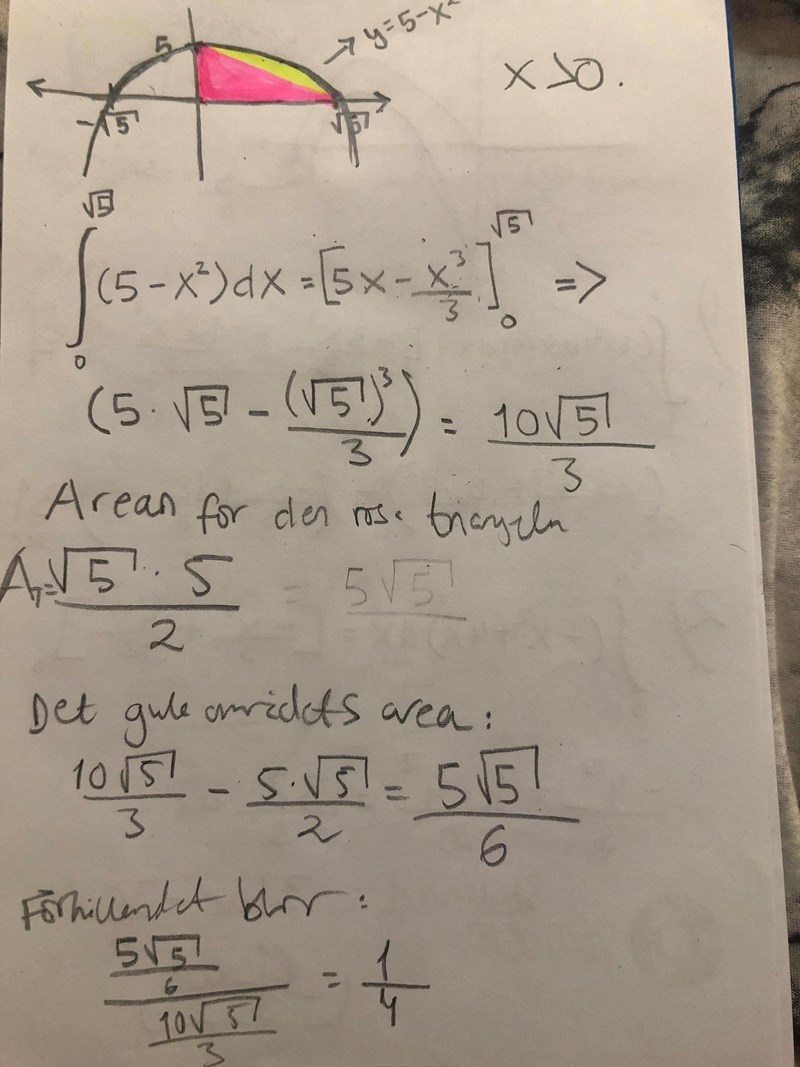 5
y=5-x²
x>0.
-√5
√5
√5
∫(5-x²)dx = [5x - x³/3]
√5
=>
0
0
(5·√5 - (√5)³/3) = 10√5/3
Arean för den rosa triangeln
A = √5·5/2 = 5√5
Det gula områdets area:
10√5/3 - 5·√5/2 = 5√5/6
Förhållandet blir:
5√5/6 / 10√5/3 = 1/4